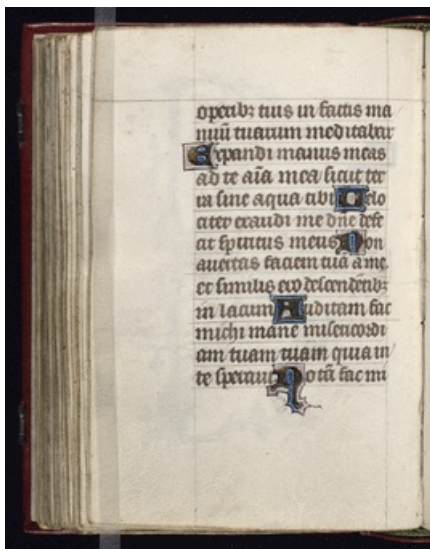 operibꝫ tuis in factis ma
nuū tuarum meditabar
Expandi manus meas
ad te aīa mea sicut ter
ra sine aqua tibi Velo
citer exaudi me dn̄e defe
cit spiritus meus Non
avertas faciem tuā a me
et similis ero descendētibꝫ
in lacum Auditam fac
michi mane misericordi
am tuam tuam quia in
te speravi Notā fac mi